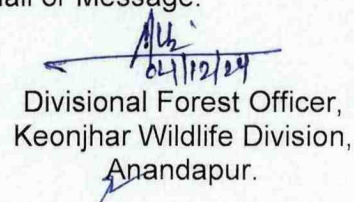 or Message.
04/12/24
Divisional Forest Officer,
Keonjhar Wildlife Division,
Anandapur.